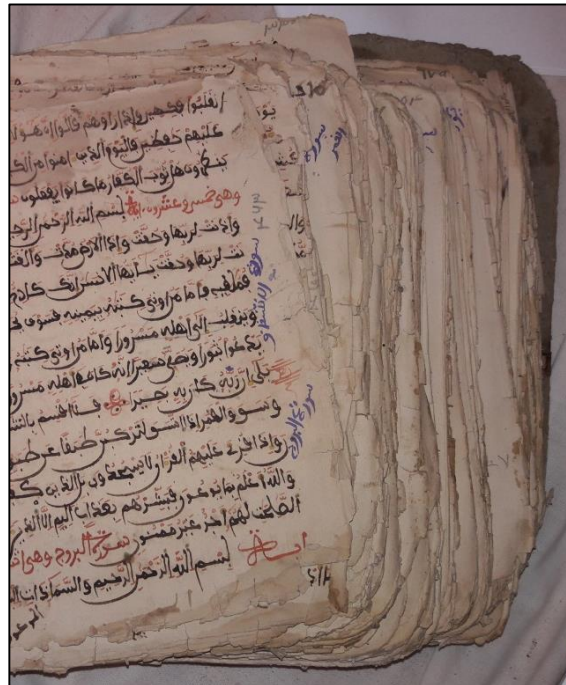 انقلبوا فكهين واذا راوهم قالوا ان هؤلا
عليهم حفظين فاليوم الذين امنوا من الك
ينظرون هل ثوب الكفار ما كانوا يفعلون
وهي خمس وعشرون اية بسم الله الرحمن الرحي
واذنت لربها وحقت واذا الارض مدت والقت
نت لربها وحقت يايها الانسان انك كادح
فملقيه فاما من اوتي كتبه بيمينه فسوف
وينقلب الى اهله مسرورا واما من اوتي كتبه
يدعوا ثبورا ويصلى سعيرا انه كان في اهله مسرورا
بلى ان ربه كان به بصيرا فلا اقسم بالش
وسق والقمر اذا اتسق لتركبن طبقا عن طبق
واذا قرئ عليهم القران لا يسجدون بل الذين كف
والله اعلم بما يوعون فبشرهم بعذاب اليم الا الذين
الصلحت لهم اجر غير ممنون سورة البروج وهي
بسم الله الرحمن الرحيم والسماء ذات ال
سورة الانشقاق
سورة البروج
سورة